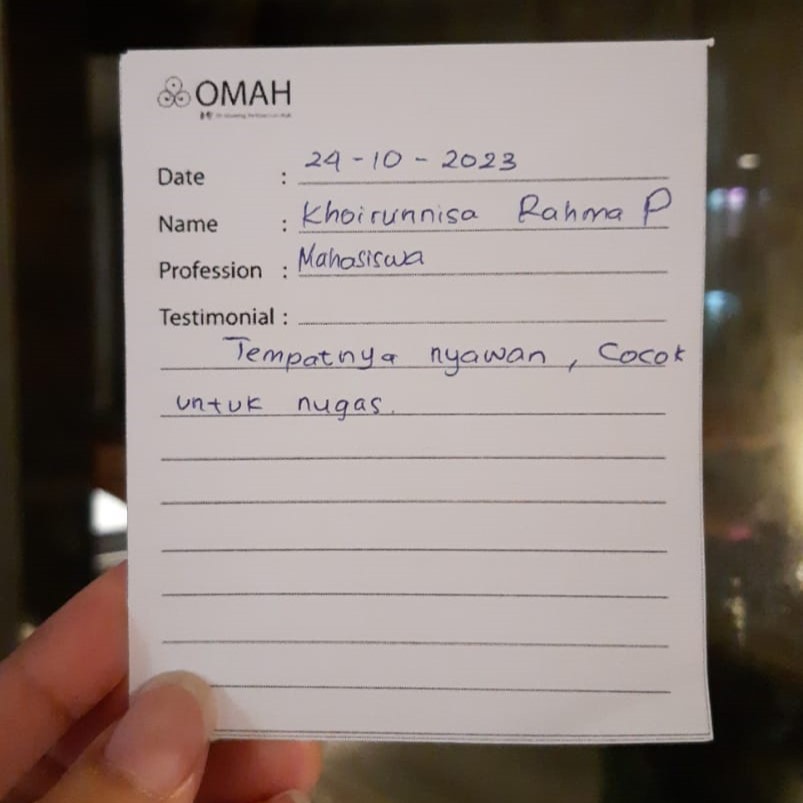 OMAH
Date : 24-10-2023
Name : Khoirunnisa Rahma P
Profession : Mahasiswa
Testimonial :
Tempatnya nyawan, Cocok
untuk nugas.